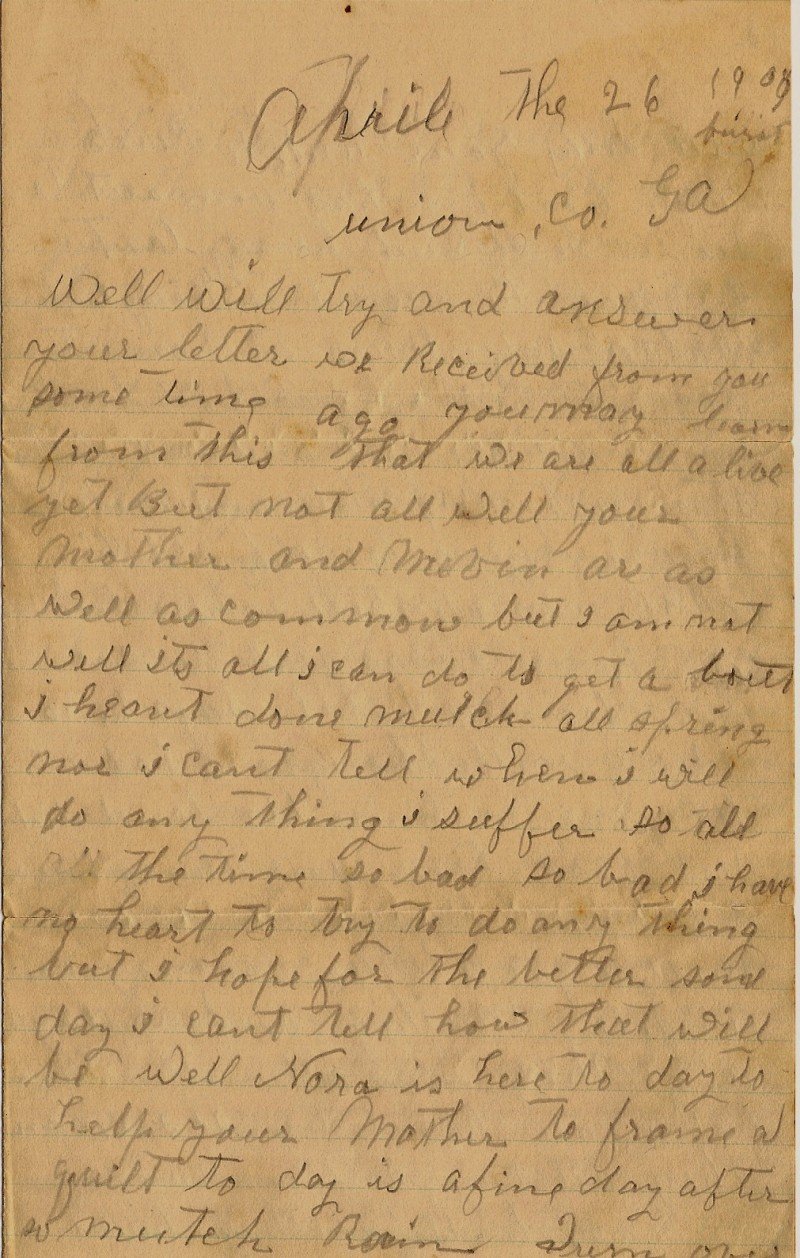 Aprile the 26 1909
union, co. Ga
Well will try and answer
your letter we Received from you
some time ago you may learn
from this that we are all alive
yet But not all well your
Mother and Melvin ar as
well as common but i am not
well its all i can do to get a bout
i heant done mutch all spring
nor i cant tell when i will
do any thing i suffer so all
all the time so bad so bad i have
no heart to try to do any thing
but i hope for the better som
day i cant tell how that will
be Well Nora is here to day to
help your Mother to frame a
quilt to day is a fine day after
so mutch Rain Turn over